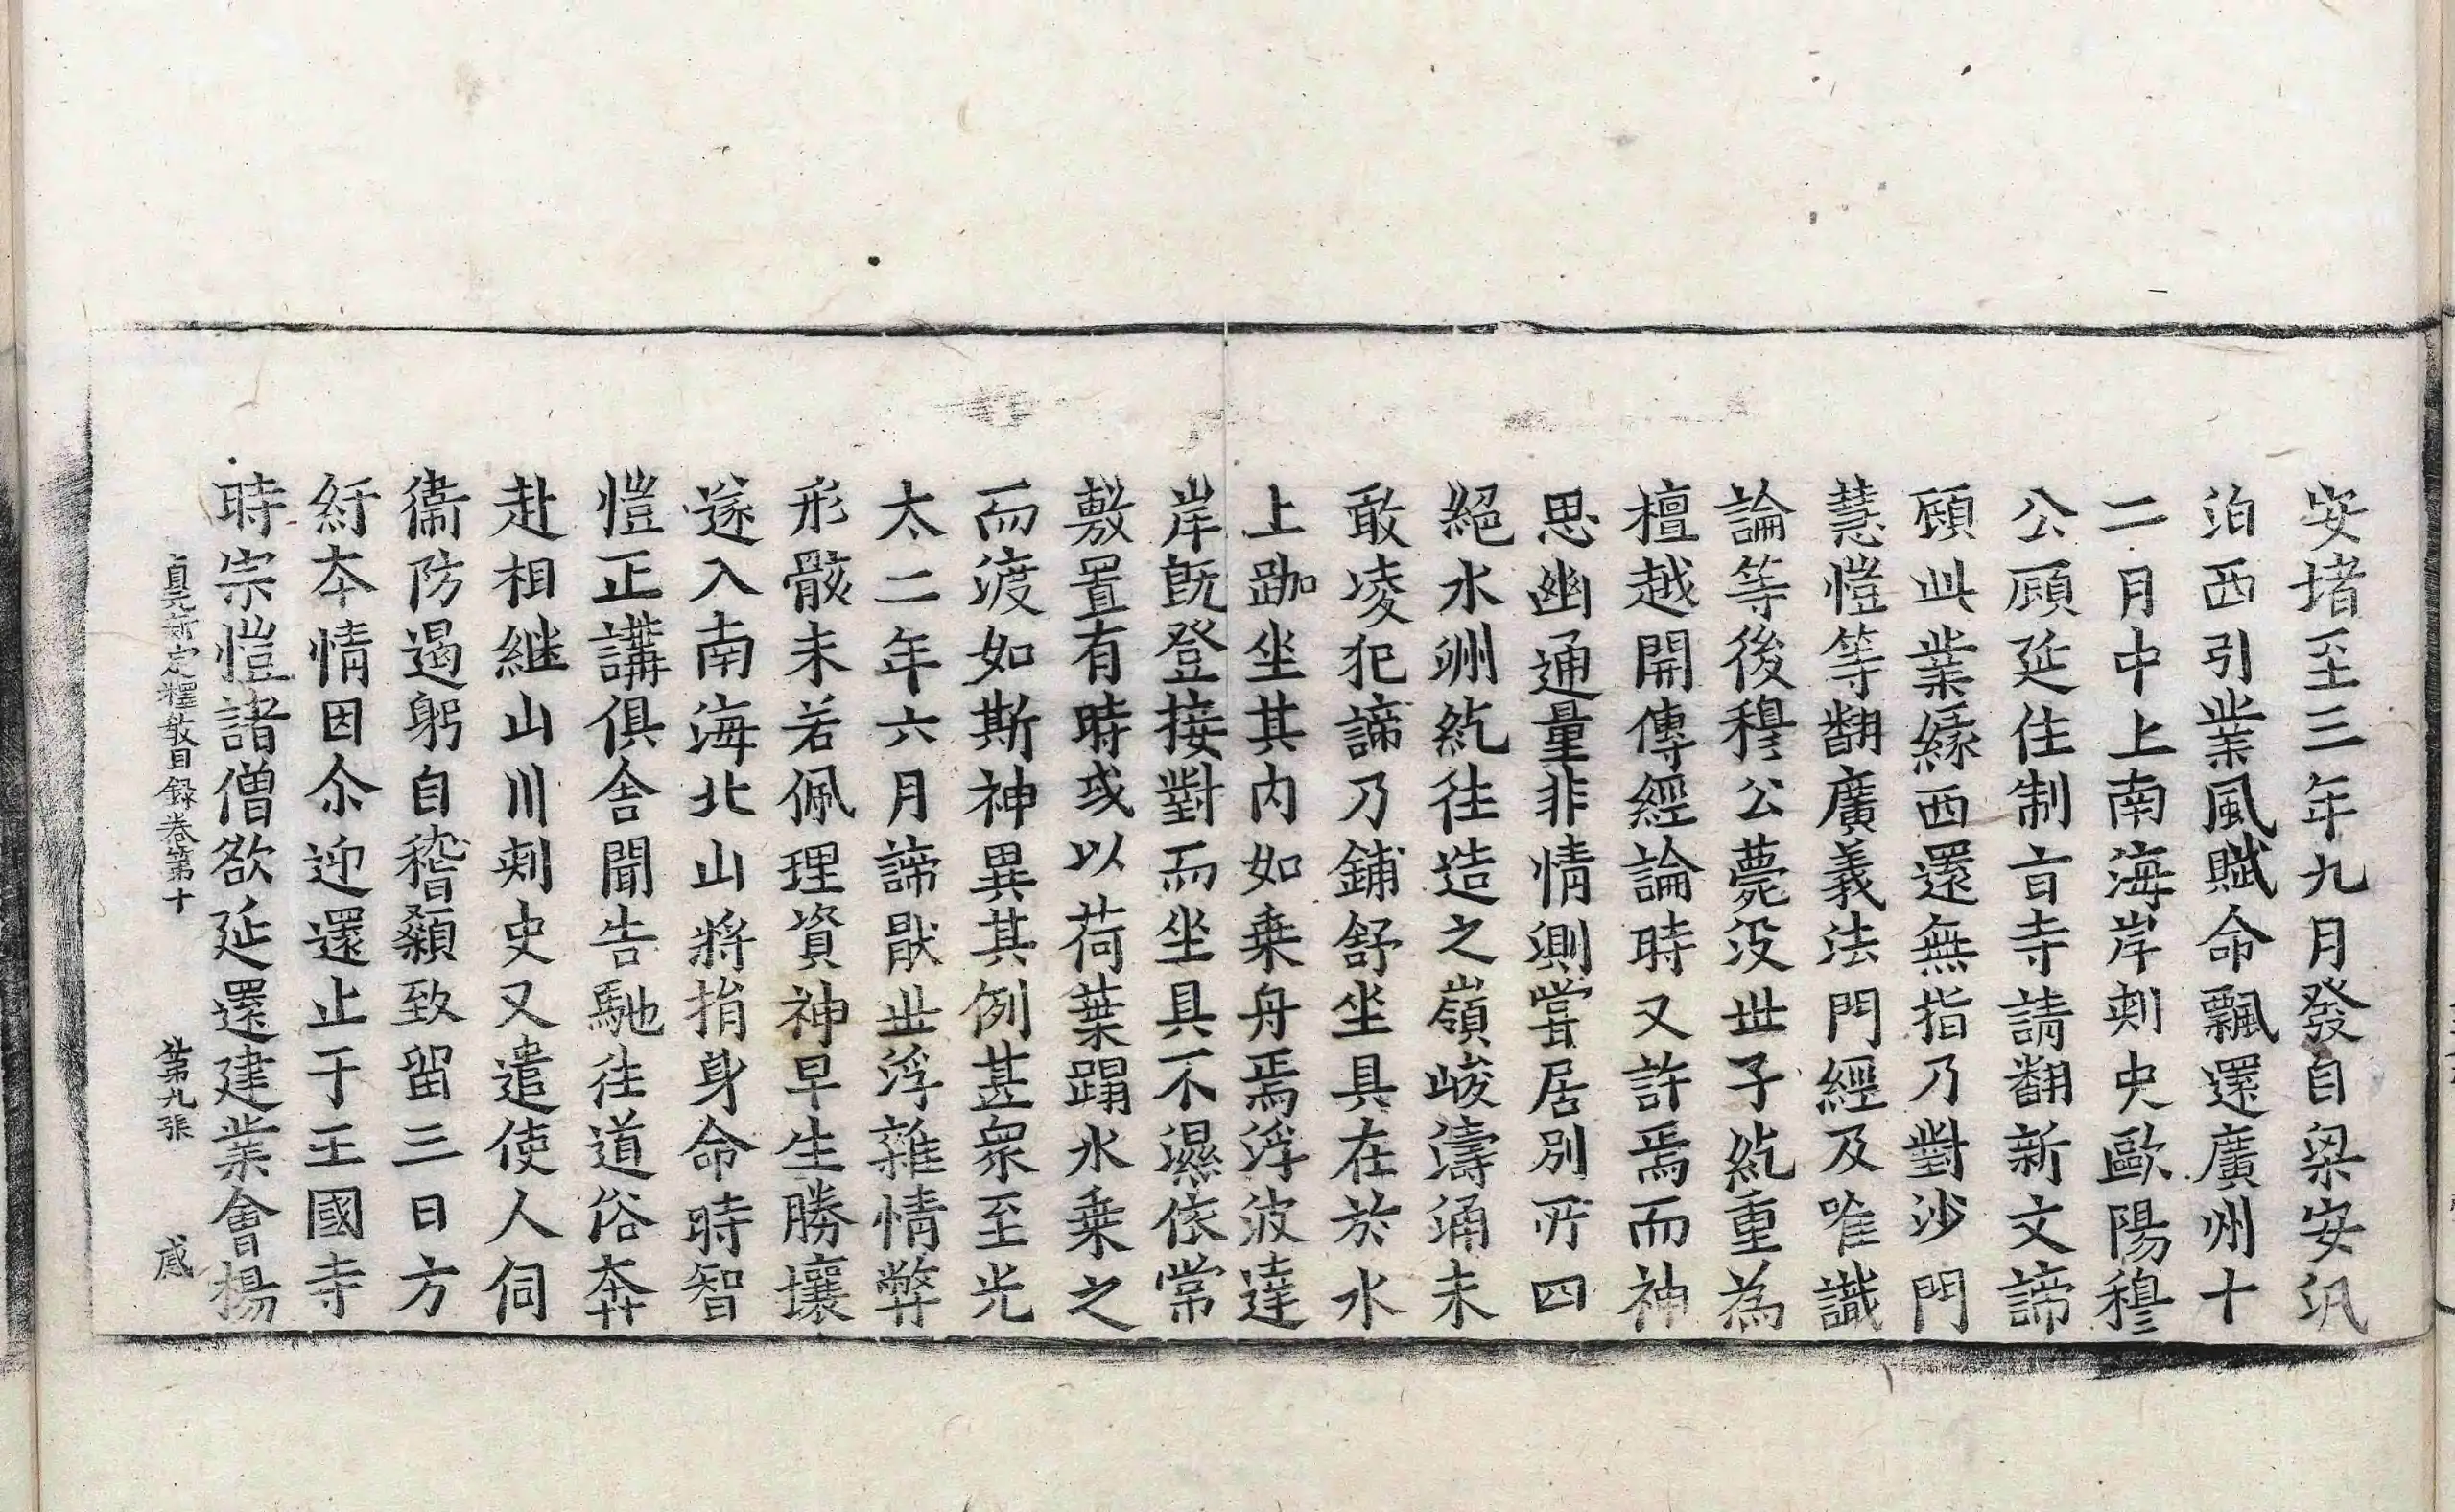 安堵至三年九月發自梁安汎
泊西引業風賦命飄還廣州十
二月中上南海岸刺史歐陽穆
公頋延住制旨寺請翻新文諦
頋此業緣西還無指乃對沙門
慧愷等翻廣義法門經及唯識
論等後穆公薨没世子紇重為
檀越開傳經論時又許焉而神
思幽通量非情測嘗居別所四
絕水洲紇往造之嶺峻濤涌未
敢凌犯諦乃鋪舒坐具在於水
上跏坐其内如乗舟焉浮波達
岸旣登接對而坐具不濕依常
敷置有時或以荷葉蹋水乗之
而渡如斯神異其例甚衆至光
太二年六月諦猒世浮雜情弊
形骸未若佩理資神早生勝壤
遂入南海北山將捐身命時智
愷正講俱舍聞告馳往道俗奔
赴相繼山川刺史又遣使人伺
衞防遏躬自稽顙致留三日方
紆本情因尒迎還止于王國寺
時宗愷諸僧欲延還建業會楊
貞元新定釋教目録卷第十 第九張 感